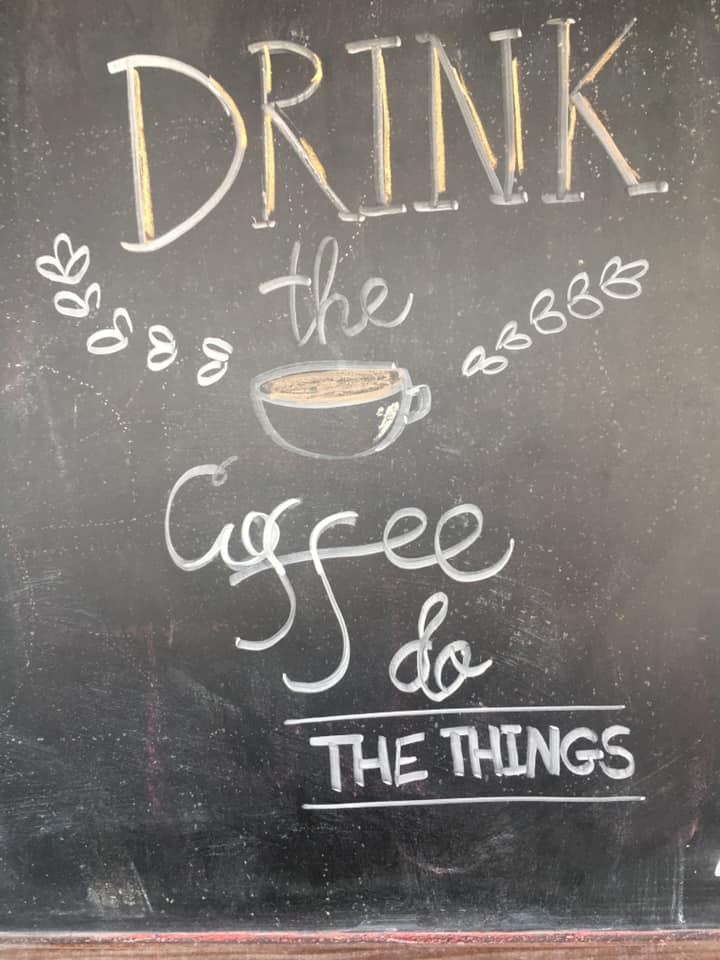 DRINK
the
Coffee
do
THE THINGS